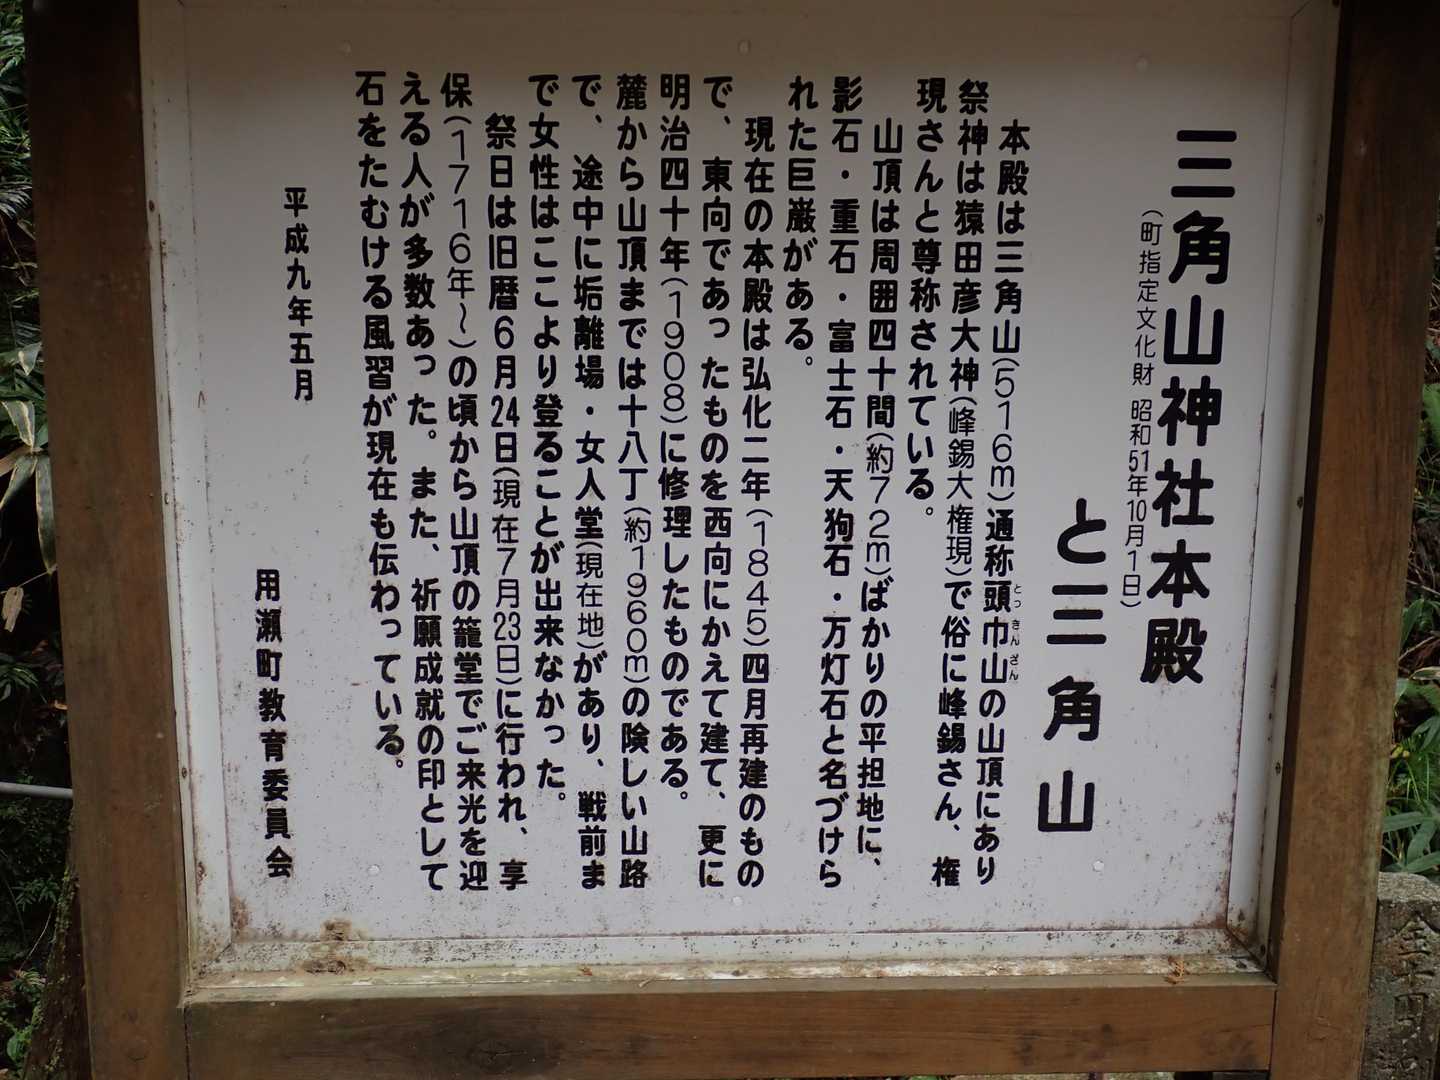 三角山神社本殿
と三角山
（町指定文化財 昭和51年10月1日）
本殿は三角山（516m）通称頭巾山の山頂にあり
とっきんざん
祭神は猿田彦大神（峰錫大権現）で俗に峰錫さん、権
現さんと尊称されている。
山頂は周囲四十間（約72m）ばかりの平担地に、
影石・重石・富士石・天狗石・万灯石と名づけら
れた巨巌がある。
現在の本殿は弘化二年（1845）四月再建のもの
で、東向であったものを西向にかえて建て、更に
明治四十年（1908）に修理したものである。
麓から山頂までは十八丁（約1960m）の険しい山路
で、途中に垢離場・女人堂（現在地）があり、戦前ま
で女性はここより登ることが出来なかった。
祭日は旧暦6月24日（現在7月23日）に行われ、享
保（1716年～）の頃から山頂の籠堂でご来光を迎
える人が多数あった。また、祈願成就の印として
石をたむける風習が現在も伝わっている。
平成九年五月
用瀬町教育委員会